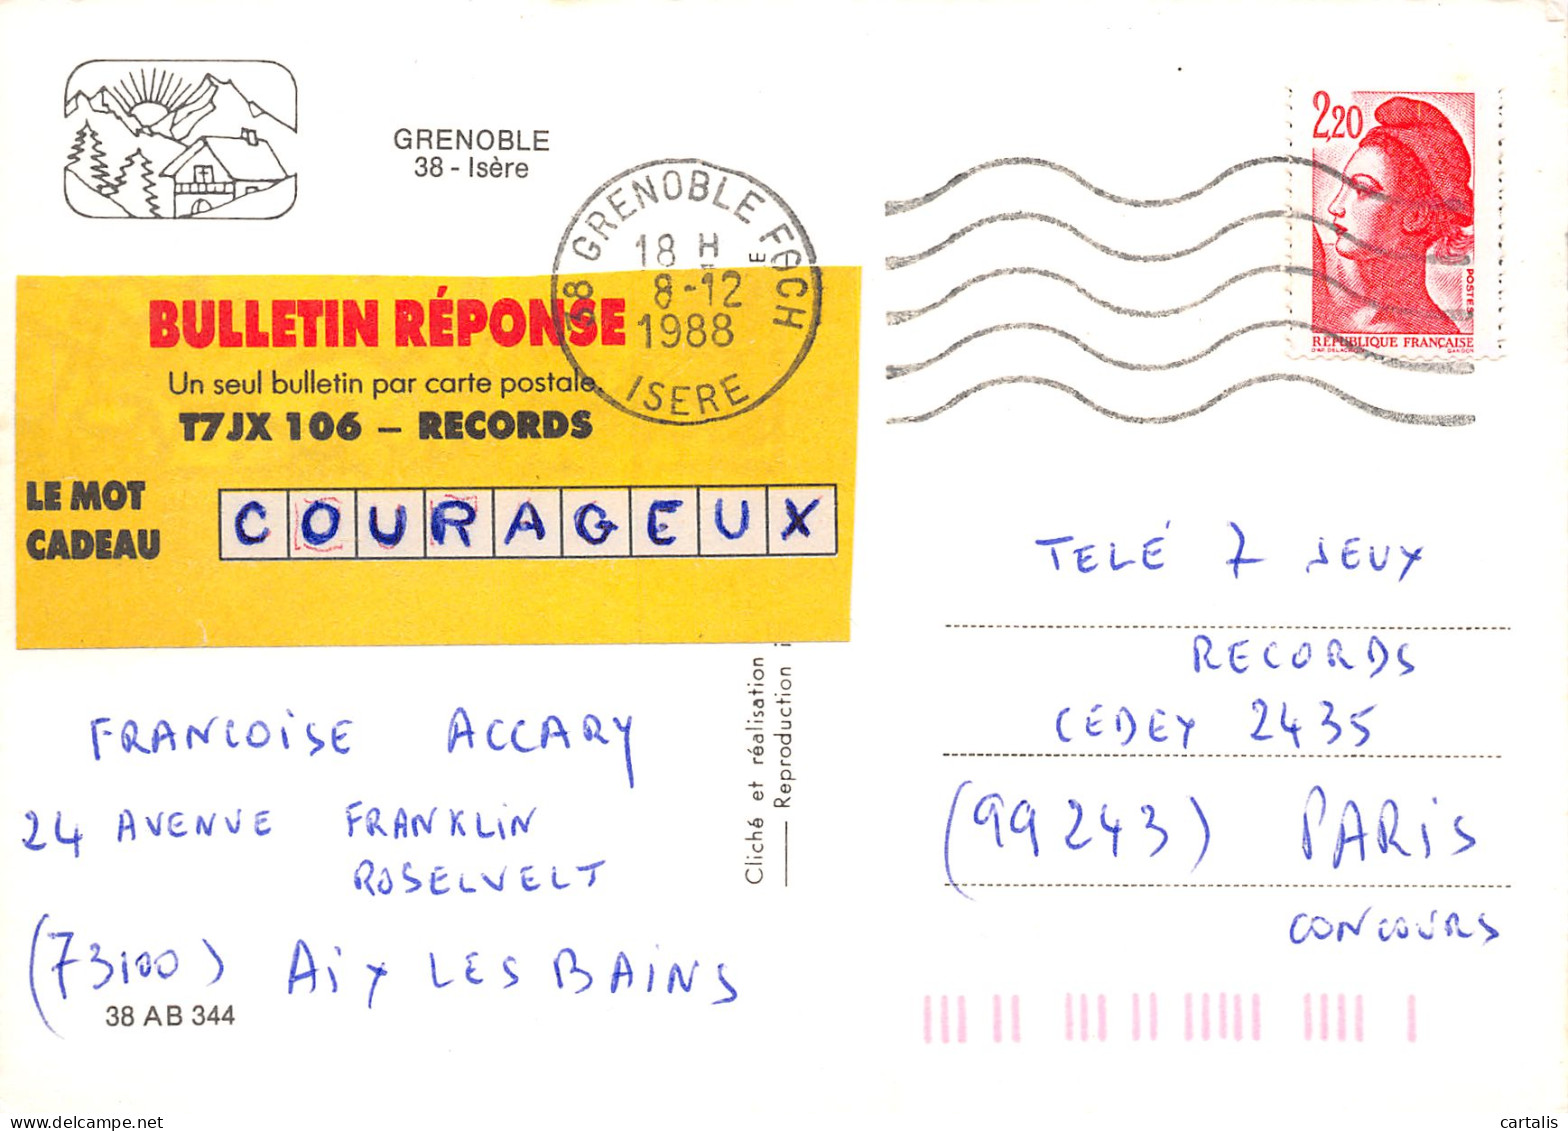 GRENOBLE
38 - Isère
38 GRENOBLE FOCH
18 H
8-12
1988
ISERE
E
2,20
POSTES
RÉPUBLIQUE FRANÇAISE
BULLETIN RÉPONSE
Un seul bulletin par carte postale.
T7JX 106 – RECORDS
LE MOT
CADEAU
COURAGEUX
TELÉ 7 JEUX
RECORDS
CEDEX 2435
(99243) PARIS
CONCOURS
Cliché et réalisation
Reproduction i
FRANCOISE ACCARY
24 AVENUE FRANKLIN
ROSELVELT
(73100) AIX LES BAINS
38 AB 344
cartalis